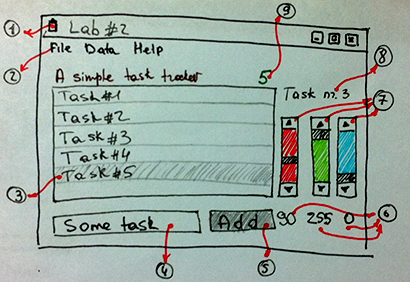 9
1 Lab #2
File Data Help
2 8
A simple task tracker 5 Task nr. 3
Task #1 7
Task #2
Task #3
Task #4
3 Task #5
Some task Add 90 255 0 6
4 5